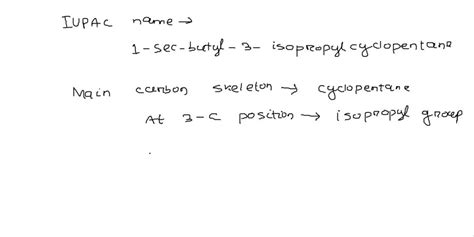 IUPAC name →
1-sec-butyl-3-isopropylcyclopentane
Main carbon skeleton → cyclopentane
At 3-C position → isopropyl group